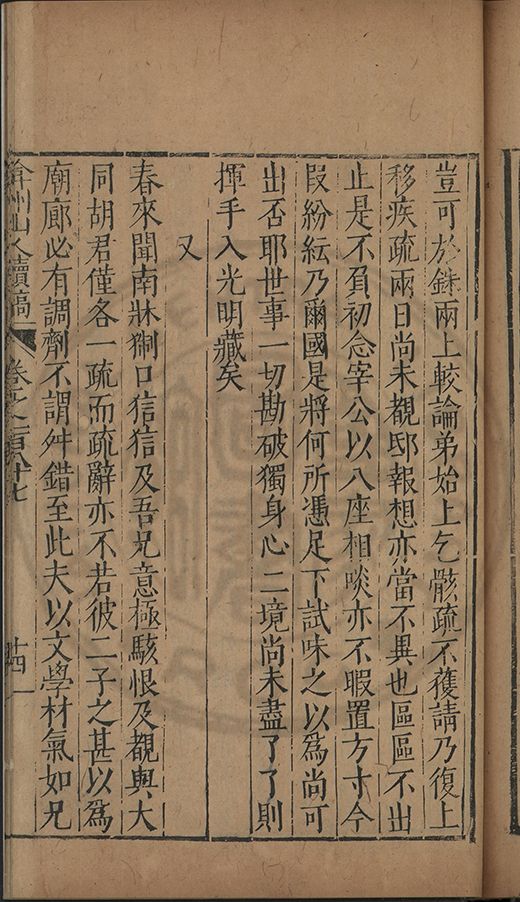 豈可於銖兩上較論弟始上乞骸疏不獲請乃復上
移疾疏兩日尚未覩邸報想亦當不異也區區不出
止是不負初念宰公以八座相啖亦不暇置方寸今
叚紛紜乃爾國是將何所憑足下試味之以爲尚可
出否耶世事一切勘破獨身心二境尚未盡了了則
揮手入光明藏矣
又
春來聞南牀猘口狺狺及吾兄意極駭恨及覩與大
同胡君僅各一疏而疏辭亦不若彼二子之甚以爲
廟廊必有調劑不謂舛錯至此夫以文學材氣如兄
弇州山人續稿 卷之一百八十七 十四